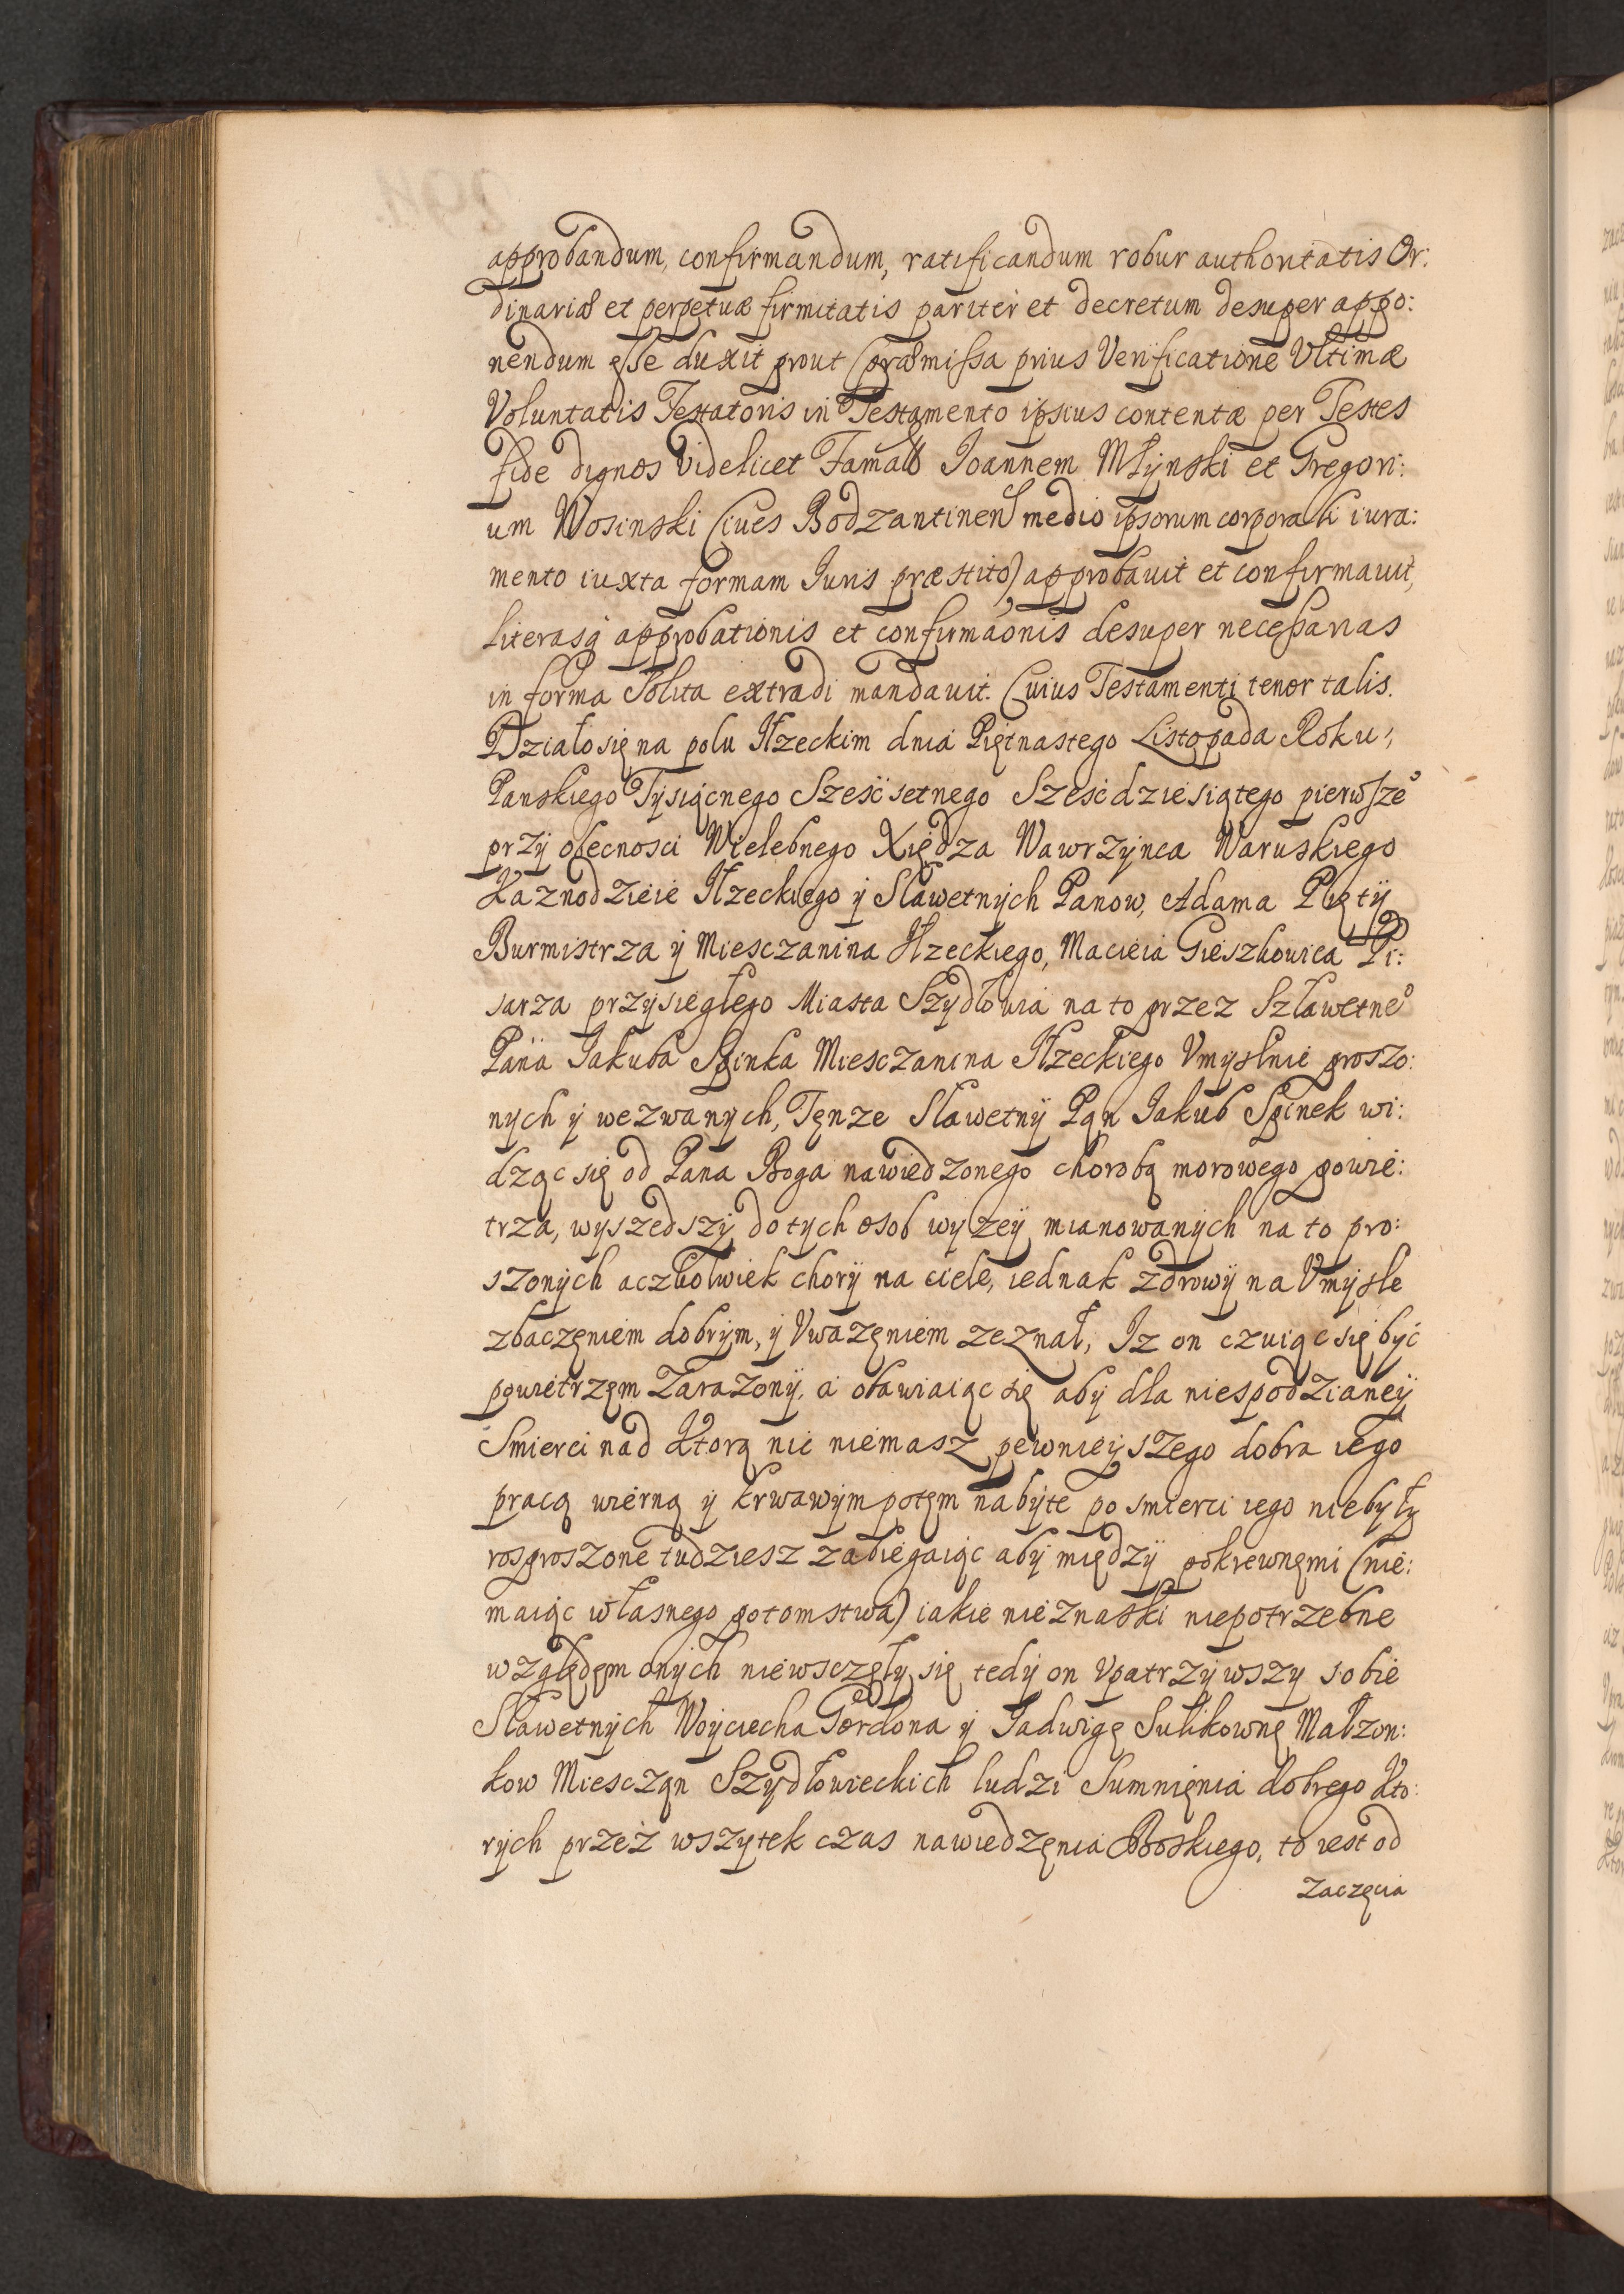 approbandum, confirmandum, ratificandum robur authoritatis Or:
dinariæ et perpetuæ firmitatis pariter et decretum desuper appo:
nendum esse duxit prout (præmissa prius Verificatione Ultimæ
Voluntatis Testatoris in Testamento ipsius contentæ per Testes
fide dignos videlicet Famatos Ioannem Młynski et Gregori:
um Wosinski Cives Bodzantinen medio ipsorum corporali iura:
mento iuxta formam Iuris præstito) approbavit et confirmavit,
Literasq approbationis et confirmaonis desuper necessarias
in forma Solita extradi mandavit. Cuius Testamenti tenor talis.
Działo się na polu Iłzeckim dnia Piętnastego Listopada Roku
Panskiego Tysiącnego Sześćsetnego Sześćdziesiątego pierwsze°
przÿ obecnosci Wielebnego Xiędza Wawrzÿnca Waruskiego
Kaznodzieie Iłzeckiego ÿ Sławetnÿch Panow, Adama Piętÿ
Burmistrza ÿ Miesczanina Iłzeckiego, Macieia Gieszkowica Pi:
sarza przÿsięgłego Miasta Szydłowia na to przez Szławetne°
Pana Iakuba Spinka Miesczanina Iłzeckiego Vmyslnie proszo:
nych ÿ wezwanych, Tęnze Sławetnÿ Pąn Iakub Spinek wi:
dząc się od Pana Boga nawiedzonego chorobą morowego powie:
trza, wyszedszÿ do tych osob wyzeÿ mianowanÿch na to pro:
szonÿch aczkolwiek chorÿ na ciele, iednak zdrowÿ na Vmÿsle
zbaczęniem dobrÿm, ÿ Vwazęniem zeznał, Iz on czuiąc się być
powietrzęm Zarazonÿ, a obawiaiąc się abÿ dla niespodzianeÿ
Smierci nad Ktorą nic niemasz pewnieÿszego dobra iego
pracą wierną ÿ krwawÿm potęm nabÿte po smierci iego niebyły
rosproszone tudziesz zabiegaiąc abÿ międzÿ pokrewnęmi (nie:
maiąc własnego potomstwa) iakie nieznaski niepotrzebne
względęm onÿch niewsczęły się tedÿ on Vpatrzÿwszy sobie
Sławetnÿch Woÿciecha Gordona ÿ Iadwigę Sulikownę Małzon:
kow Miescząn Szÿdłowieckich ludzi Sumnięnia dobrego Kto:
rÿch przez wszytek czas nawiedzęnia Boskiego, to iest od
Zaczęcia